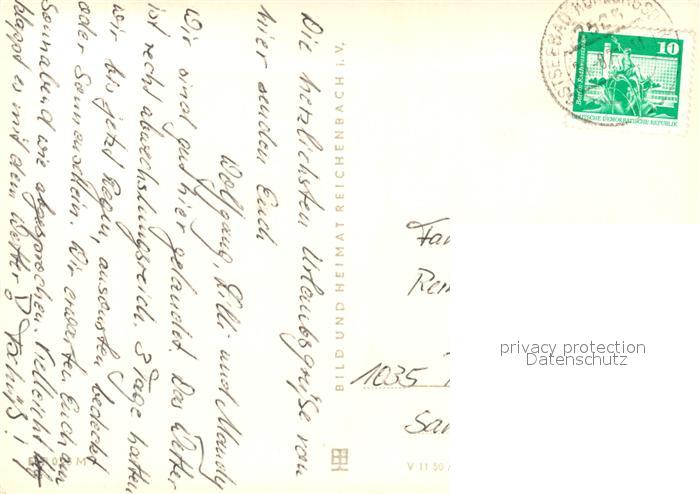 Die herzlichsten Urlaubsgrüße von
hier senden Euch
Wolfgang, Lilli und Mandy
Wir sind gut hier gelandet. Das Wetter
ist recht abwechslungsreich. 3 Tage hatten
wir bis jetzt Regen, ansonsten bedeckt
oder Sonnenschein. Wir erwarten Euch am
Sonnabend wie abgesprochen. Vielleicht
klappt es mit dem Wetter. Tschüß!
BILD UND HEIMAT REICHENBACH I. V.
V 11 50
OSTSEEBAD
10
DEUTSCHE DEMOKRATISCHE REPUBLIK
Fam
1035
privacy protection
Datenschutz